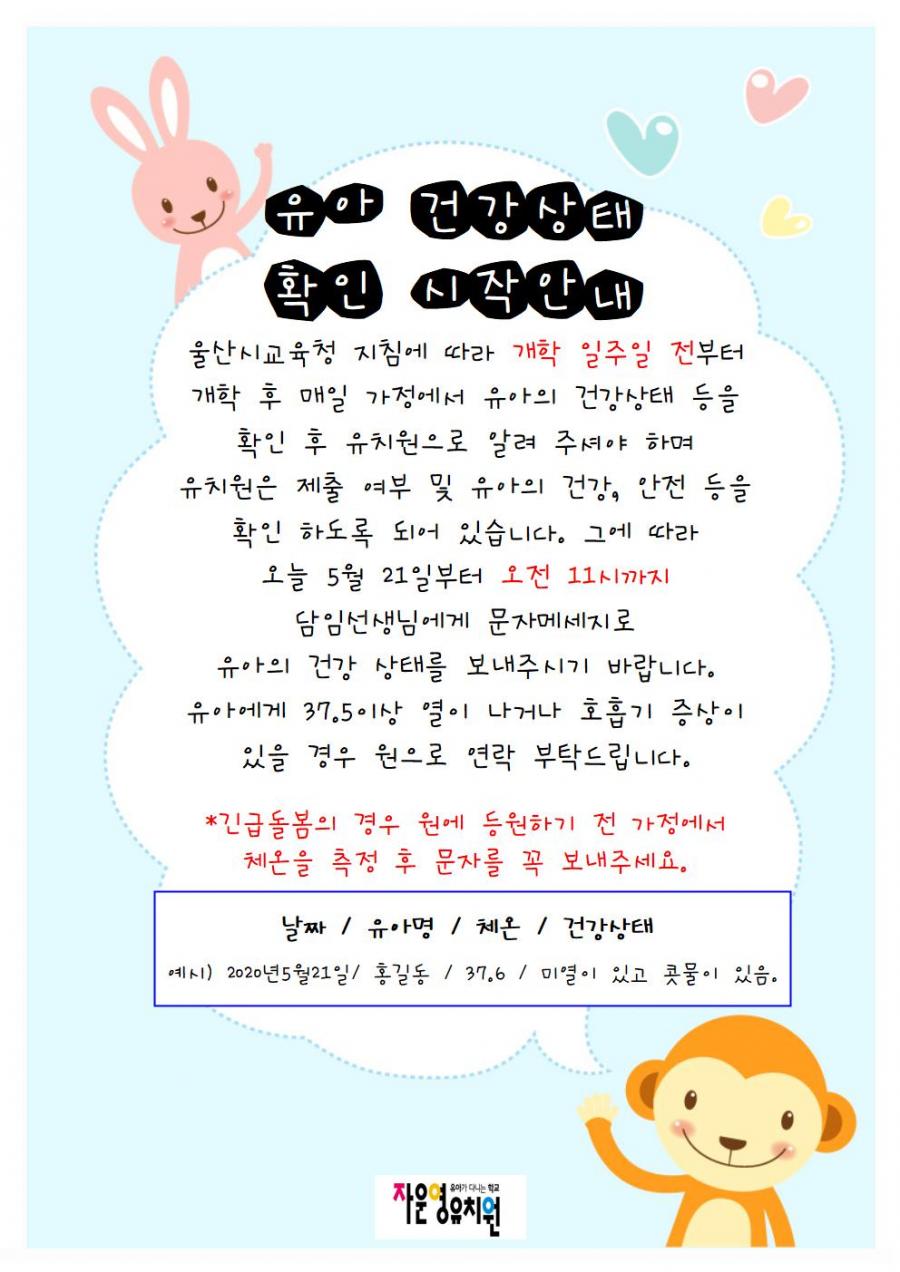 유아 건강상태
확인 시작안내
울산시교육청 지침에 따라 개학 일주일 전부터
개학 후 매일 가정에서 유아의 건강상태 등을
확인 후 유치원으로 알려 주셔야 하며
유치원은 제출 여부 및 유아의 건강, 안전 등을
확인 하도록 되어 있습니다. 그에 따라
오늘 5월 21일부터 오전 11시까지
담임선생님에게 문자메세지로
유아의 건강 상태를 보내주시기 바랍니다.
유아에게 37.5이상 열이 나거나 호흡기 증상이
있을 경우 원으로 연락 부탁드립니다.
*긴급돌봄의 경우 원에 등원하기 전 가정에서
체온을 측정 후 문자를 꼭 보내주세요.
날짜 / 유아명 / 체온 / 건강상태
예시) 2020년5월21일/ 홍길동 / 37.6 / 미열이 있고 콧물이 있음.
유아가 다니는 학교
자운영유치원